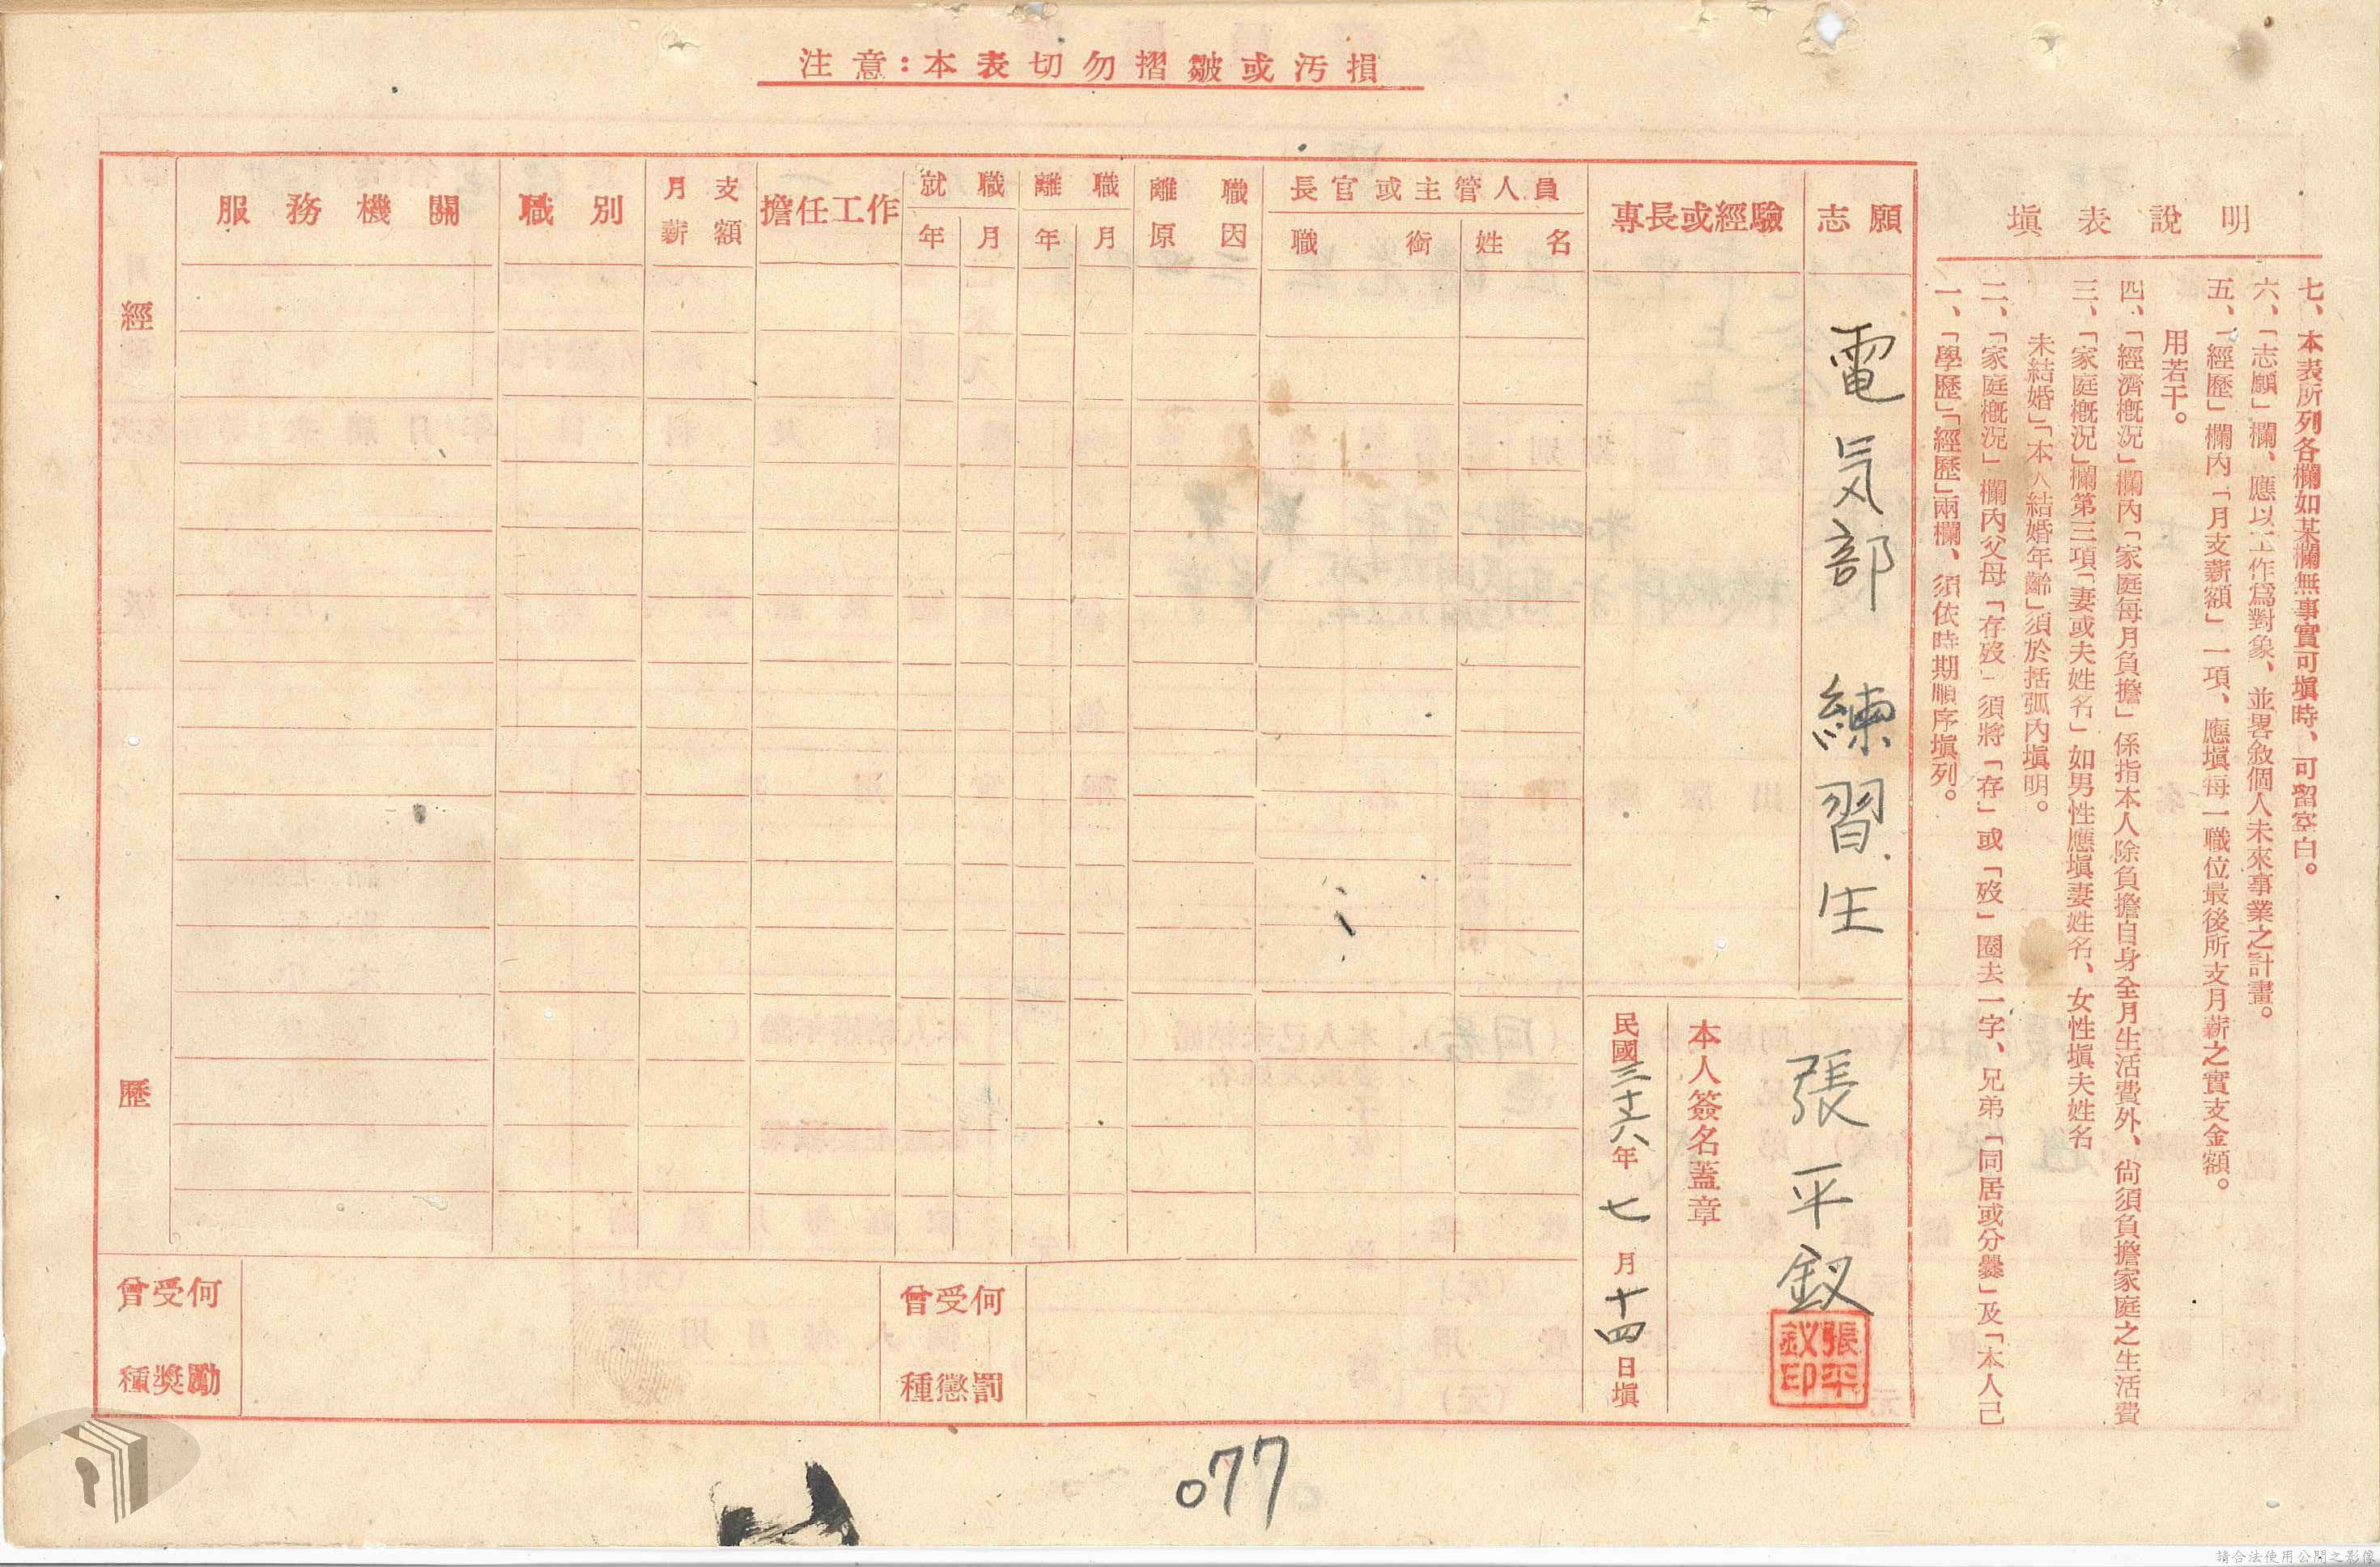 注意：本表切勿摺皺或汚損
填表說明
一、「學歷」「經歷」兩欄、須依時期順序塡列。
二、「家庭概況」欄內父母「存歿」須將「存」或「歿」圈去一字、兄弟「同居或分爨」及「本人已
未結婚」「本人結婚年齡」須於括弧內塡明。
三、「家庭概況」欄第三項「妻或夫姓名」如男性應塡妻姓名、女性塡夫姓名
四、「經濟概況」欄內「家庭每月負擔」係指本人除負擔自身全月生活費外、尙須負擔家庭之生活費
用若干。
五、「經歷」欄內「月支薪額」一項、應塡每一職位最後所支月薪之實支金額。
六、「志願」欄、應以工作爲對象、並畧敘個人未來事業之計畫。
七、本表所列各欄如某欄無事實可塡時、可留空白。
經歷
服務機關
職別
月支薪額
擔任工作
就職
年
月
離職
年
月
離職原因
長官或主管人員
職銜
姓名
專長或經驗
志願
電気部 練習生
本人簽名蓋章
張平釵
張平釵印
民國三十六年七月十四日塡
曾受何種獎勵
曾受何種懲罰
077
請合法使用公開之影像